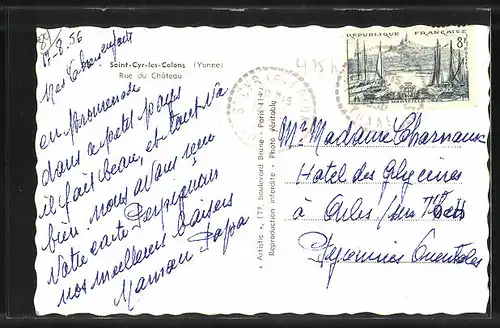 89
17.8.56
Saint-Cyr-les-Colons (Yonne)
Rue du Château
Mes Chers enfants
en promenade
dans ce petit pays
il fait beau, et tout va
bien. nous avons reçu
Votre carte Perpignan
nos meilleurs baisers
Maman Papa
« Artistic », 177, boulevard Brune - Paris
Reproduction interdite - Photo Véritable
REPUBLIQUE FRANÇAISE
8F
MARSEILLE
Mr Madame Charnaux
Hotel des Glycines
à Arles/sur Tech
Pyrennées Orientales